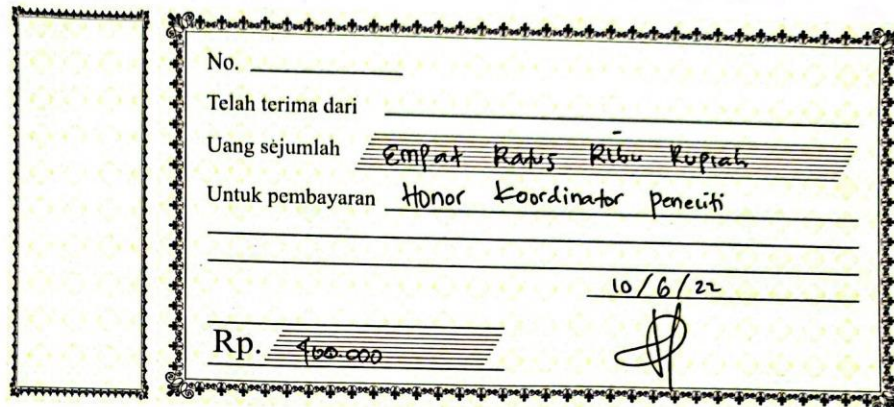 No.
Telah terima dari
Uang sejumlah Empat Ratus Ribu Rupiah
Untuk pembayaran Honor Koordinator peneliti
10/6/22
Rp. 400.000